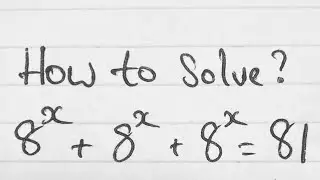 How to Solve?
8^x + 8^x + 8^x = 81